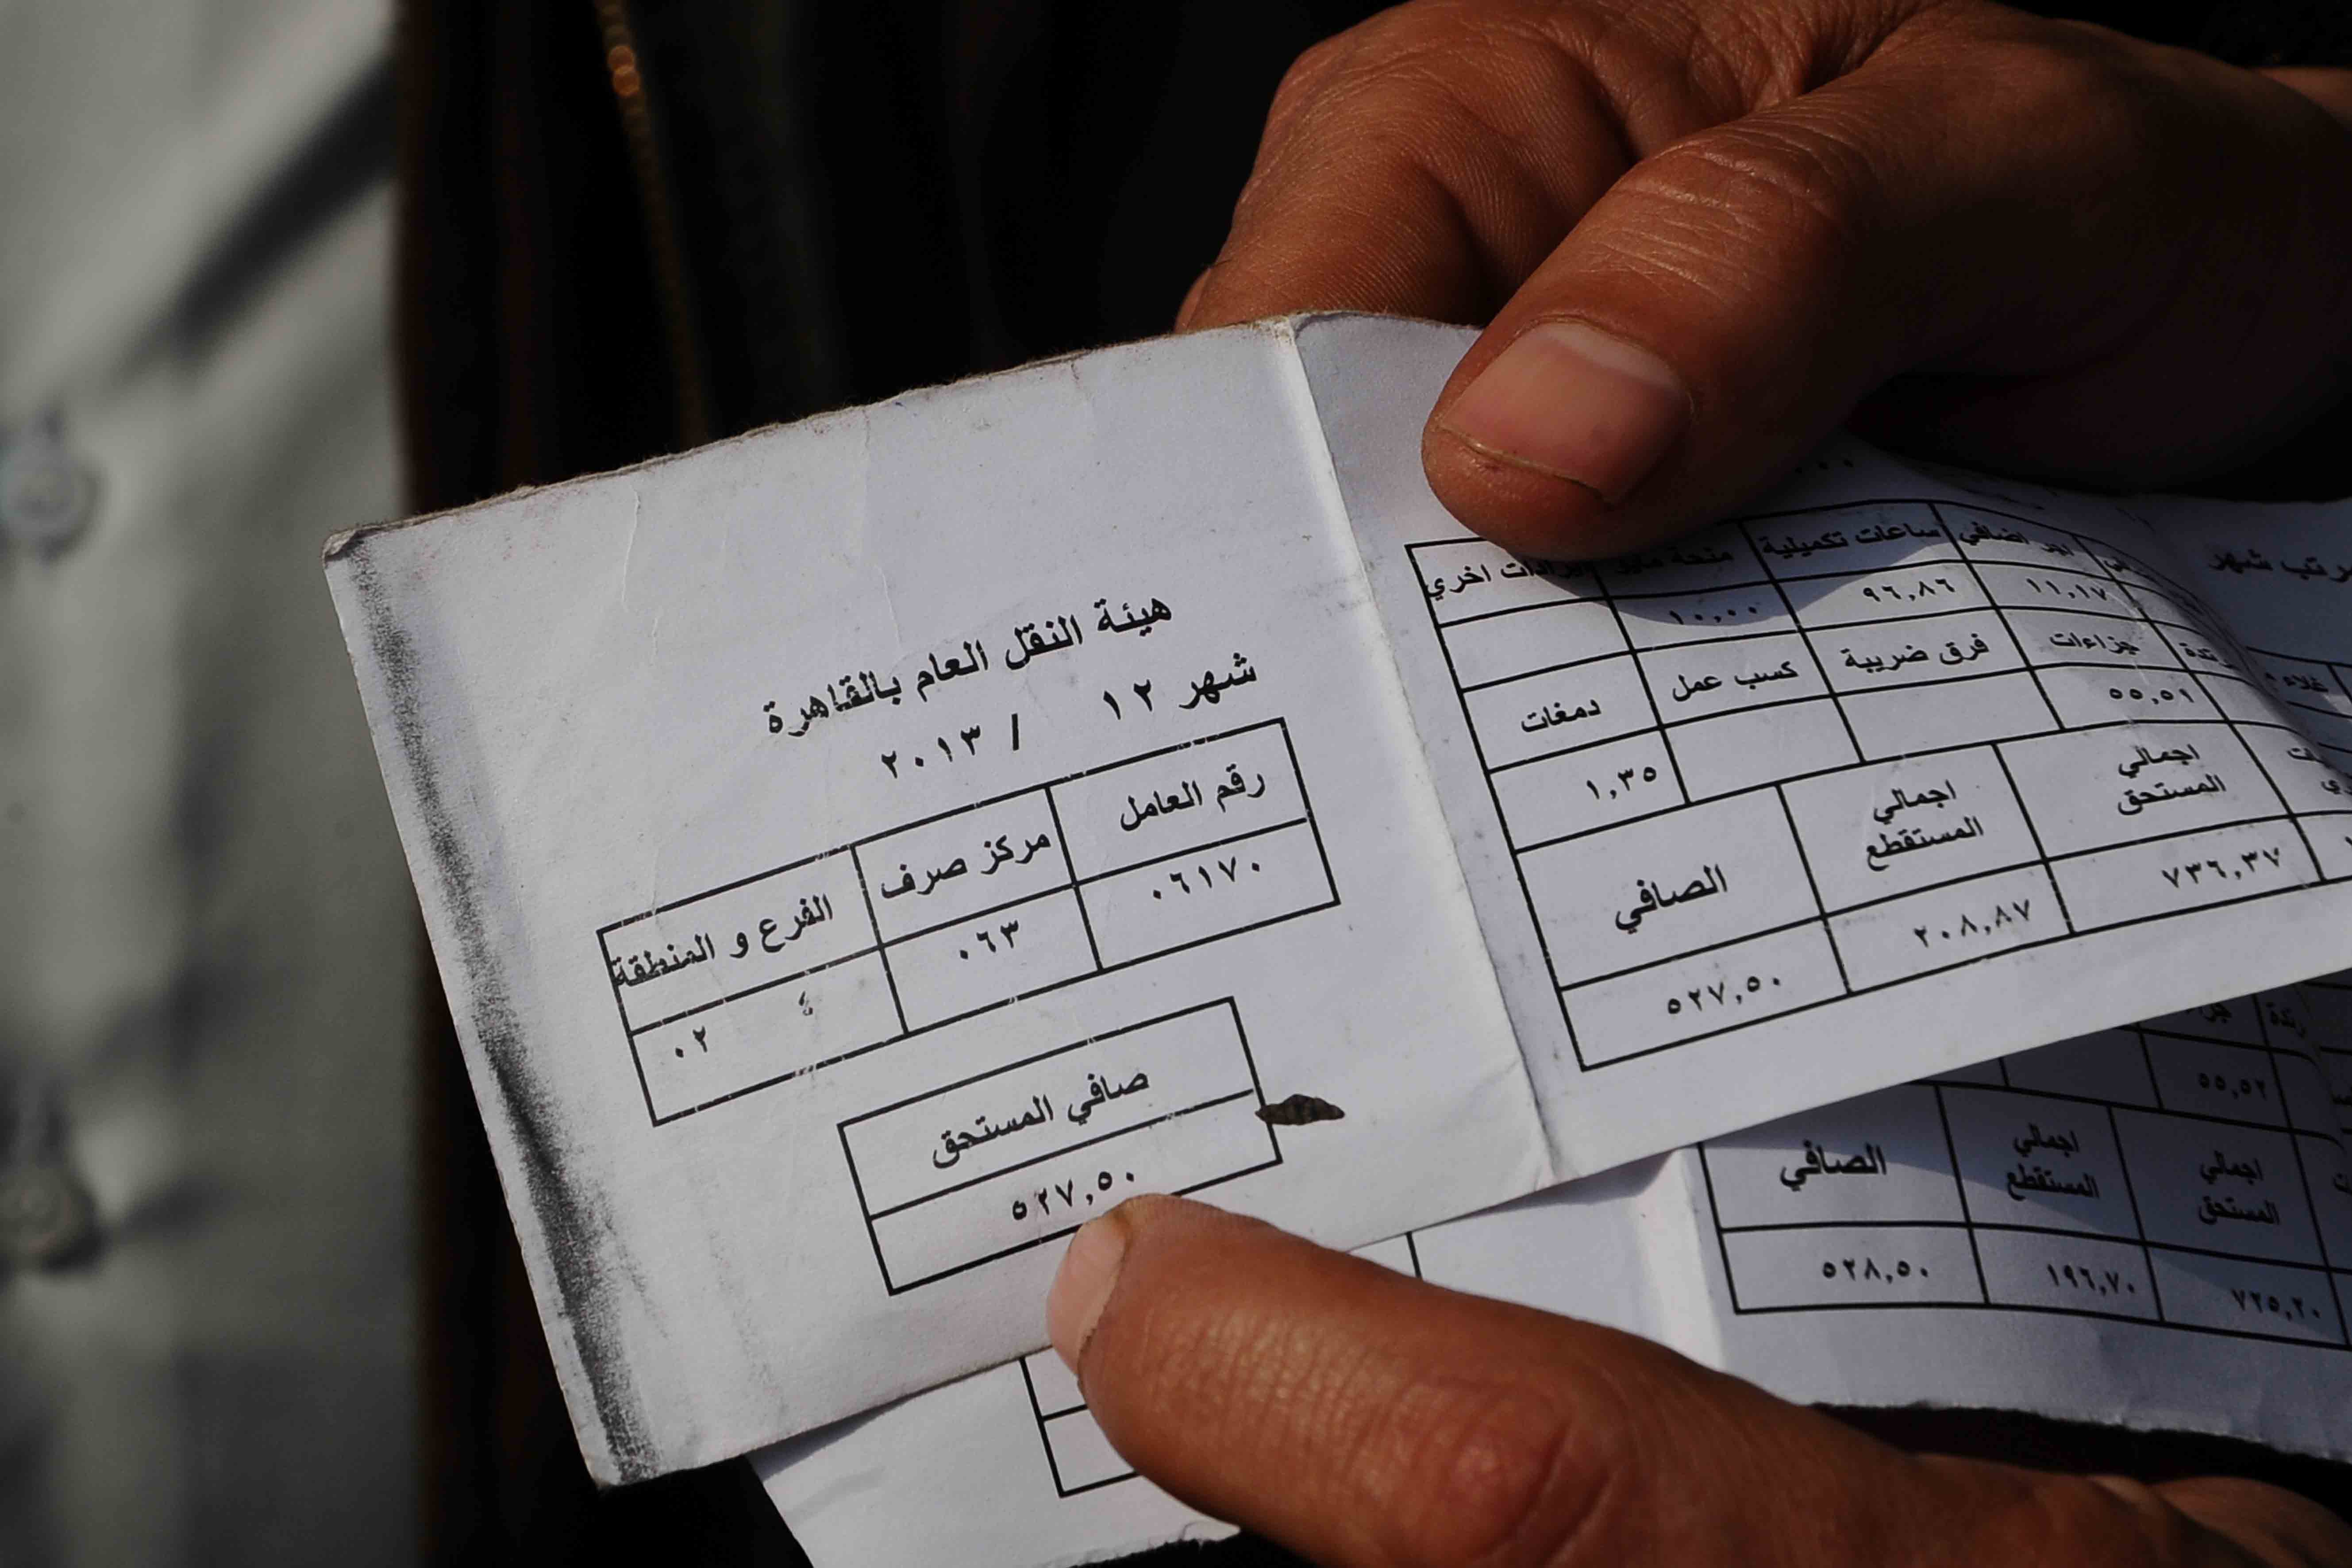 هيئة النقل العام بالقاهرة
شهر ١٢ / ٢٠١٣
رقم العامل مركز صرف الفرع و المنطقة
٠٦١٧٠ ٠٦٣ ٤ ٠٢
صافي المستحق
٥٢٧,٥٠
شهر
اضافي ساعات تكميلية منحة اخري
١١,١٧ ٩٦,٨٦ ١٠,٠٠
جزاءات فرق ضريبة كسب عمل دمغات
٥٥,٥١ ١,٣٥
اجمالي المستحق اجمالي المستقطع الصافي
٧٣٦,٣٧ ٢٠٨,٨٧ ٥٢٧,٥٠
٥٥,٥٢
اجمالي المستحق اجمالي المستقطع الصافي
٧٢٥,٢٠ ١٩٦,٧٠ ٥٢٨,٥٠